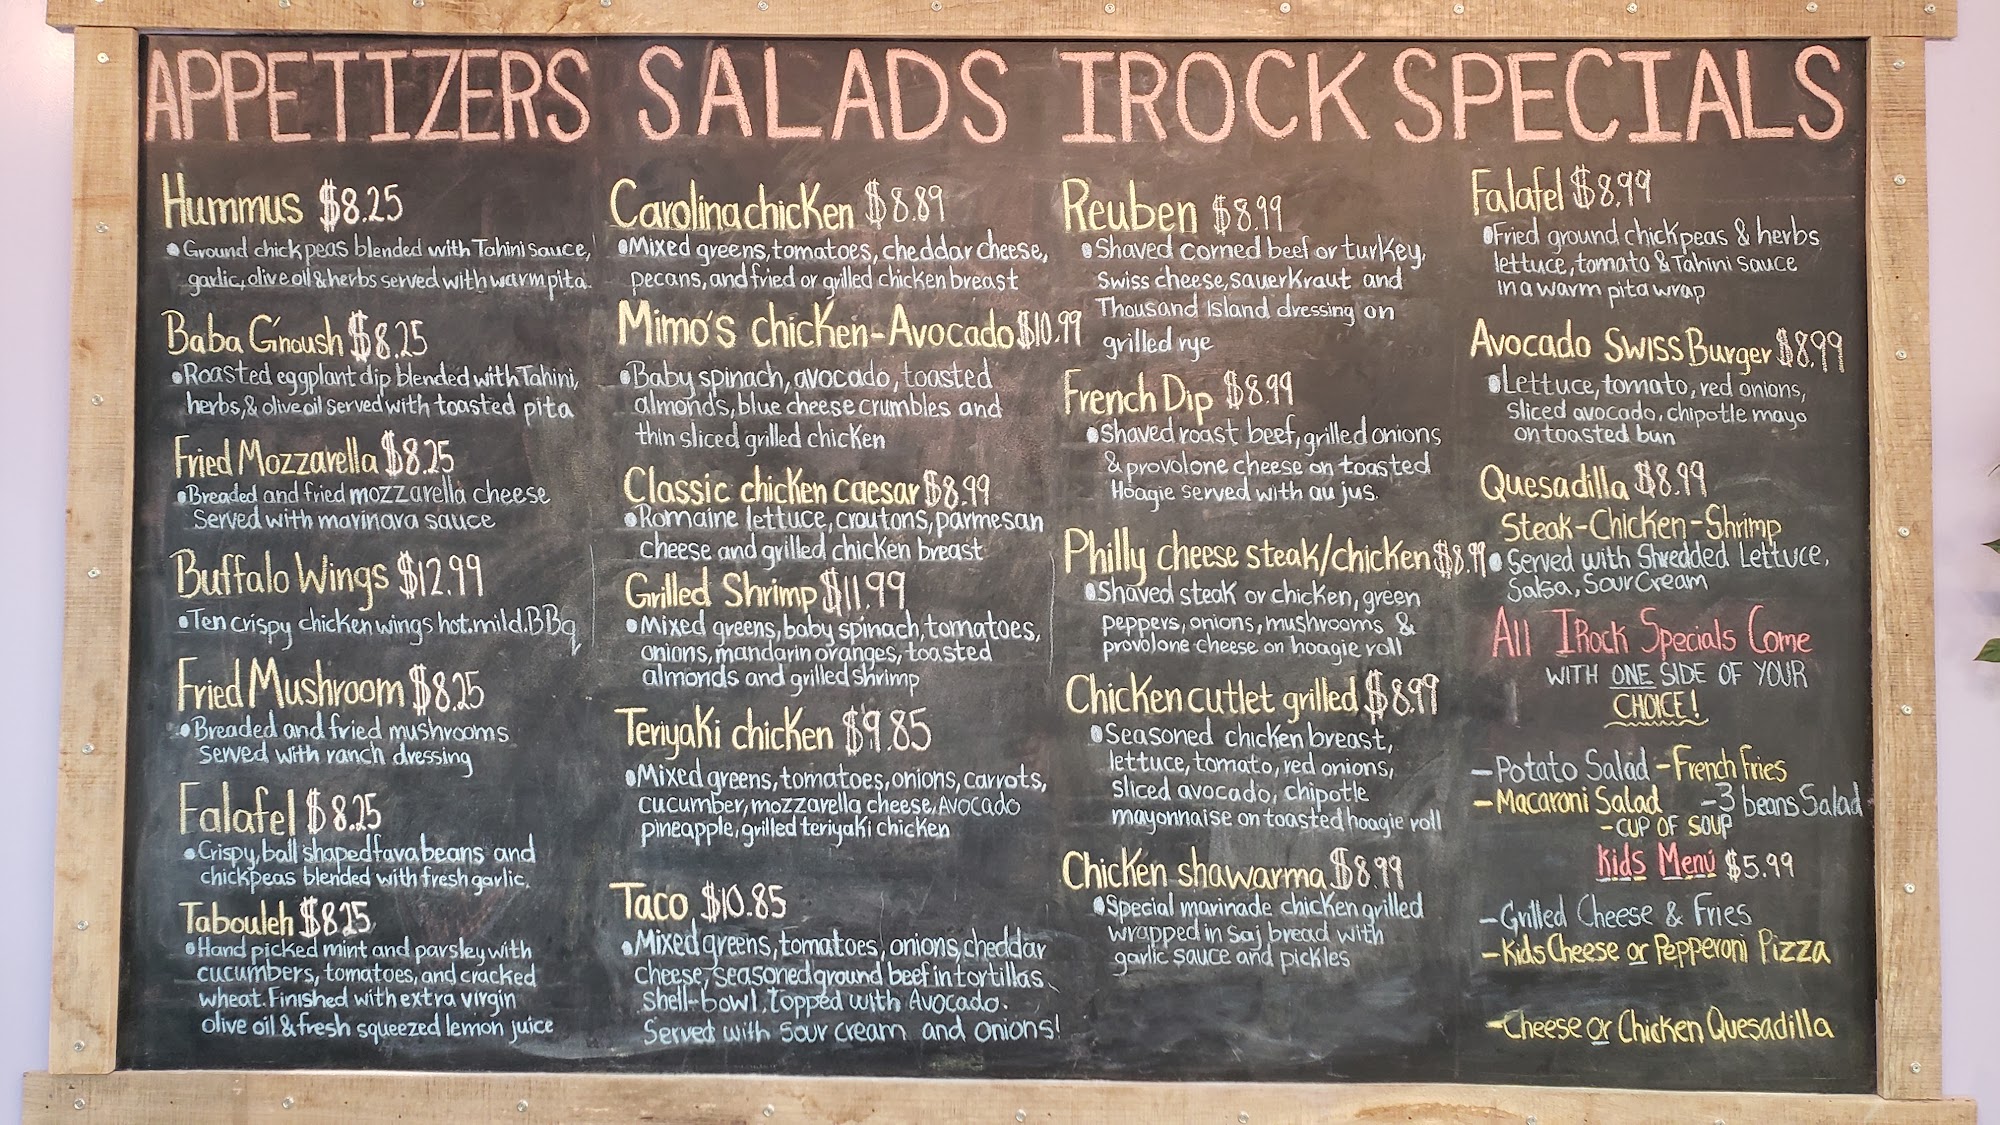 APPETIZERS
Hummus $8.25
Ground chick peas blended with Tahini sauce,
garlic, olive oil & herbs served with warm pita.
Baba G'noush $8.25
Roasted eggplant dip blended with Tahini,
herbs, & olive oil served with toasted pita
Fried Mozzarella $8.25
Breaded and fried mozzarella cheese
Served with marinara sauce
Buffalo Wings $12.99
Ten crispy chicken wings hot.mild.BBq
Fried Mushroom $8.25
Breaded and fried mushrooms
served with ranch dressing
Falafel $8.25
Crispy, ball shaped fava beans and
chickpeas blended with fresh garlic.
Tabouleh $8.25
Hand picked mint and parsley with
cucumbers, tomatoes, and cracked
wheat. Finished with extra virgin
olive oil & fresh squeezed lemon juice
SALADS
Carolina chicken $8.89
Mixed greens, tomatoes, cheddar cheese,
pecans, and fried or grilled chicken breast
Mimo's chicken-Avocado $10.99
Baby spinach, avocado, toasted
almonds, blue cheese crumbles and
thin sliced grilled chicken
Classic chicken caesar $8.99
Romaine lettuce, croutons, parmesan
cheese and grilled chicken breast
Grilled Shrimp $11.99
Mixed greens, baby spinach, tomatoes,
onions, mandarin oranges, toasted
almonds and grilled shrimp
Teriyaki chicken $9.85
Mixed greens, tomatoes, onions, carrots,
cucumber, mozzarella cheese, Avocado
pineapple, grilled teriyaki chicken
Taco $10.85
Mixed greens, tomatoes, onions, cheddar
cheese, seasoned ground beef in tortillas
shell-bowl. topped with Avocado.
Served with Sour cream and onions!
IROCK SPECIALS
Reuben $8.99
Shaved corned beef or turkey,
swiss cheese, sauerkraut and
Thousand Island dressing on
grilled rye
French Dip $8.99
Shaved roast beef, grilled onions
& provolone cheese on toasted
Hoagie served with au jus.
Philly cheese steak/chicken $8.99
Shaved steak or chicken, green
peppers, onions, mushrooms &
provolone cheese on hoagie roll
Chicken cutlet grilled $8.99
Seasoned chicken breast,
lettuce, tomato, red onions,
sliced avocado, chipotle
mayonnaise on toasted hoagie roll
Chicken shawarma $8.99
Special marinade chicken grilled
wrapped in Saj bread with
garlic sauce and pickles
Falafel $8.99
Fried ground chickpeas & herbs
lettuce, tomato & Tahini sauce
in a warm pita wrap
Avocado Swiss Burger $8.99
Lettuce, tomato, red onions,
sliced avocado, chipotle mayo
on toasted bun
Quesadilla $8.99
Steak-Chicken-Shrimp
Served with Shredded Lettuce,
Salsa, Sour Cream
All IRock Specials Come
WITH ONE SIDE OF YOUR
CHOICE!
-Potato Salad -French Fries
-Macaroni Salad -3 beans Salad
-CUP OF SOUP
Kids Menu $5.99
-Grilled Cheese & Fries
-Kids Cheese or Pepperoni Pizza
-Cheese or Chicken Quesadilla